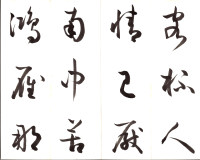 客杯人
情已厭
南中苦
鴻雁那